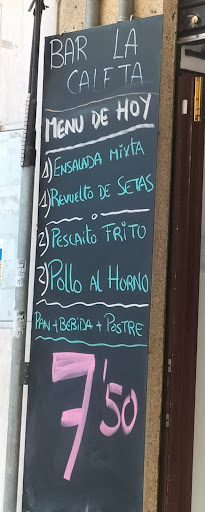 BAR LA
CALETA
MENU DE HOY
1) ENSALADA MIXTA
1) REVUELTO DE SETAS
o
2) PESCAITO FRITO
2) POLLO AL HORNO
PAN + BEBIDA + POSTRE
7'50